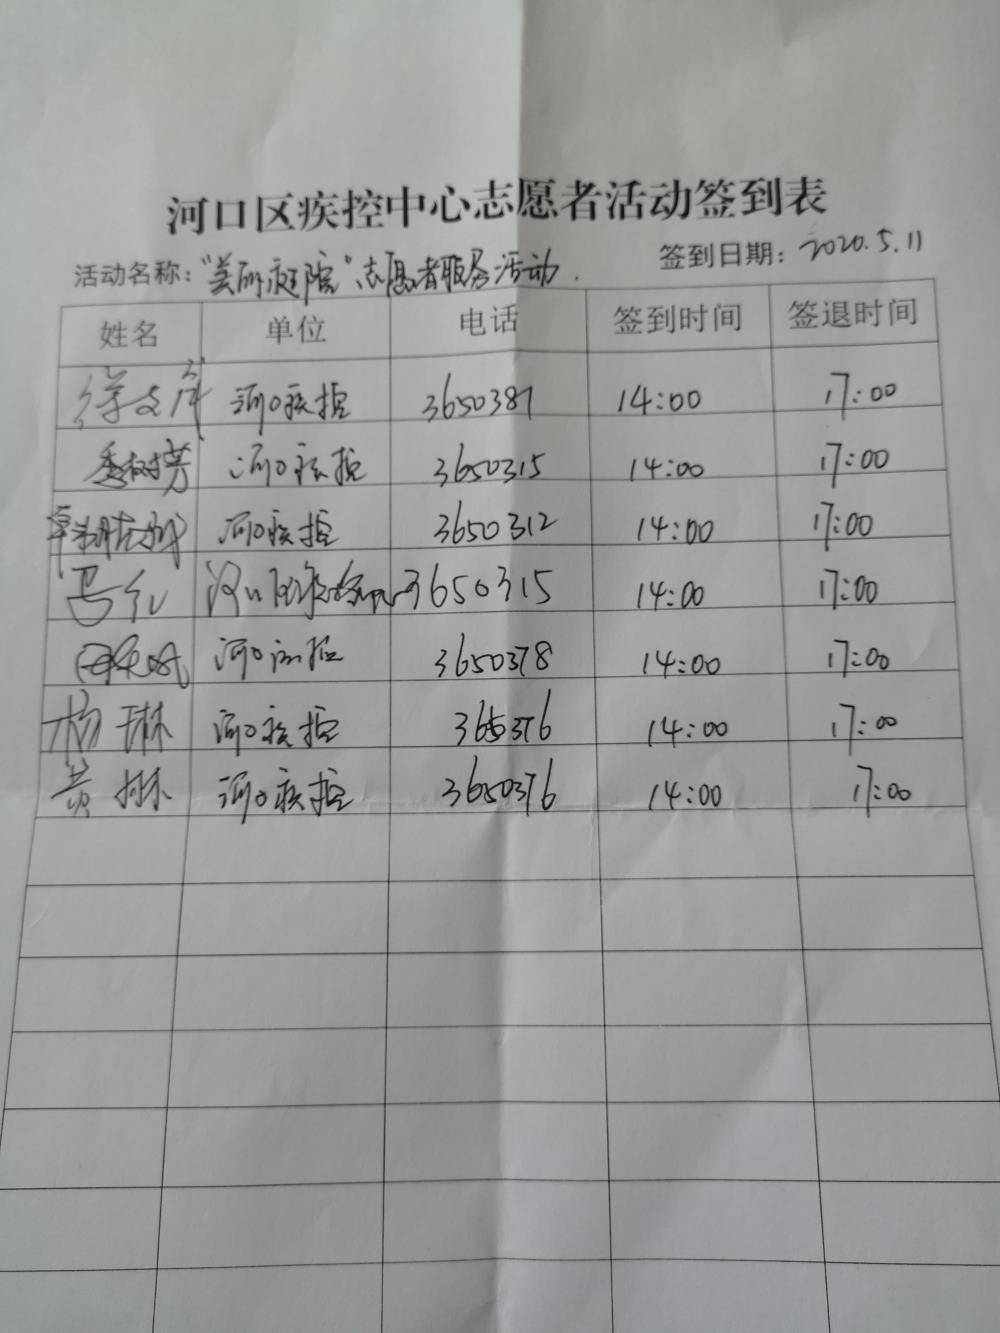 河口区疾控中心志愿者活动签到表
活动名称：“美丽庭院”志愿者服务活动. 签到日期：2020.5.11
姓名 单位 电话 签到时间 签退时间
徐文 河口疾控 3650387 14:00 17:00
河口疾控 3650315 14:00 17:00
河口疾控 3650312 14:00 17:00
马红 3650315 14:00 17:00
河口疾控 3650378 14:00 17:00
杨琳 河口疾控 365376 14:00 17:00
黄琳 河口疾控 3650376 14:00 17:00